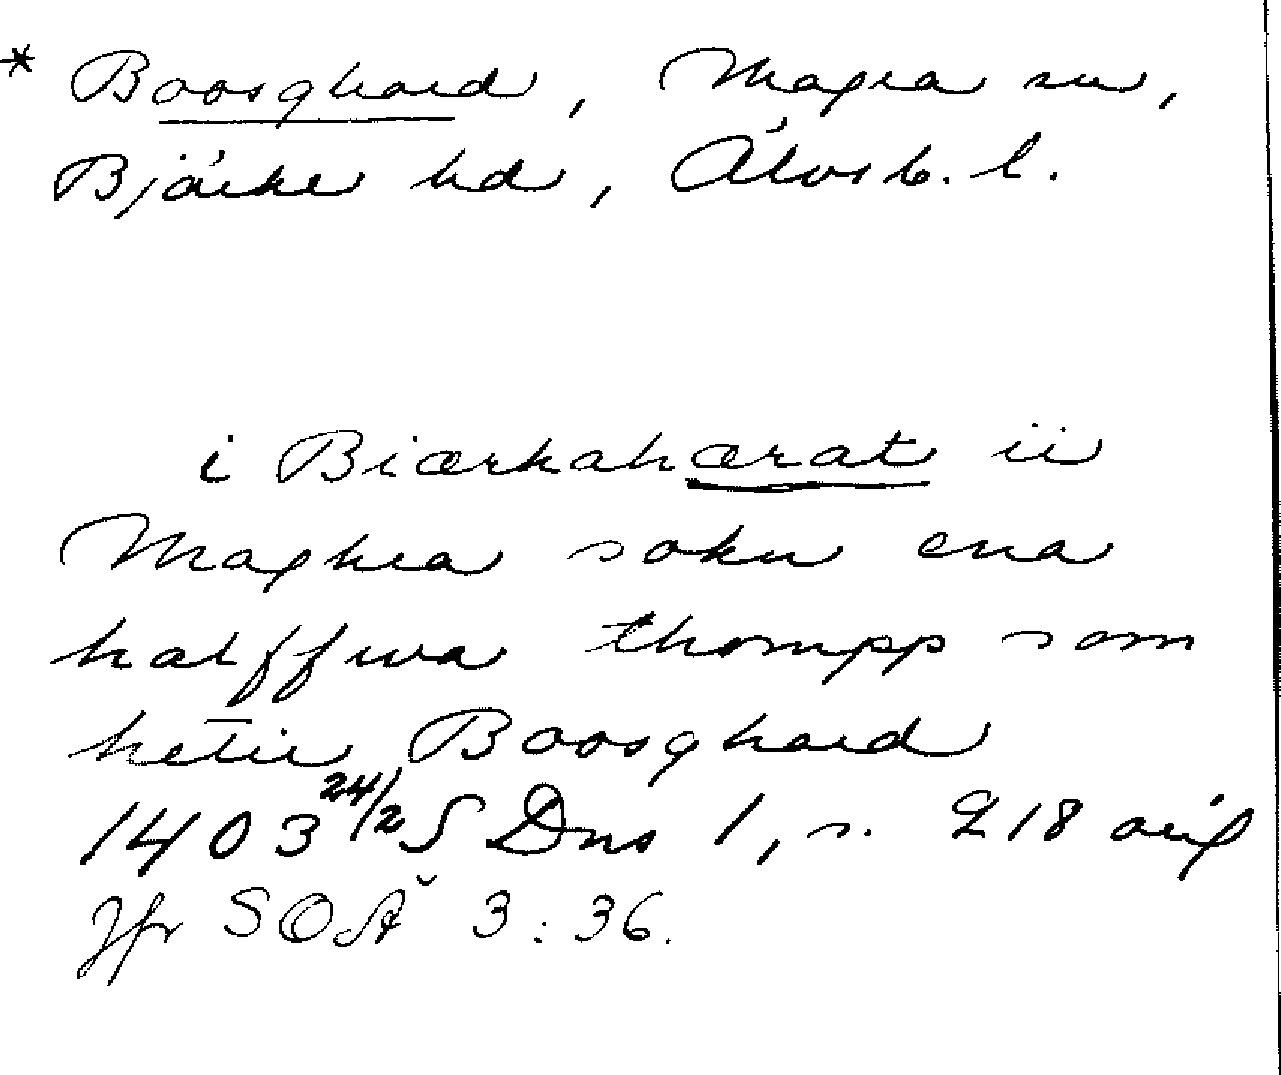 * Boosghard, Magra sn,
Bjärke hd, Älvsb. l.
i Biærkahærat ii
Maghra sokn ena
halffwa thompp som
hetir Boosghard
1403 24/2 S Dns 1, s. 218 orig
Jfr SOÄ 3:36.